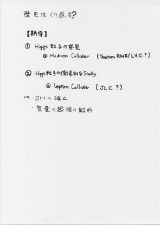 歴史はくり返す?
【期待】
① Higgs 粒子の発見
⇒ Hadron Collider (Tevatron RUNⅡ/LHC?)
② Higgs粒子の徹底的なStudy
⇒ Lepton Collider (JLC?)
→ の確立
・質量の起源の解明